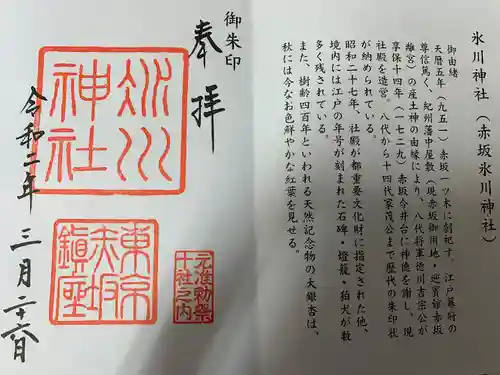 氷川神社(赤坂氷川神社)
御由緒
天暦五年(九五一)赤坂一ツ木に創祀す。江戸幕府の
尊信篤く、紀州藩中屋敷(現赤坂御用地・迎賓館赤坂
離宮)の産土神の由縁により、八代将軍徳川吉宗公が
享保十四年(一七二九)赤坂今井台に神徳を謝し、現
社殿を造営。八代から十四代家茂公まで歴代の朱印状
が納められている。
昭和二十七年、社殿が都重要文化財に指定された他、
境内には江戸の年号が刻まれた石碑・燈籠・狛犬が数
多く残されている。
また、樹齢四百年といわれる天然記念物の大銀杏は、
秋には今なお色鮮やかな紅葉を見せる。
御朱印
奉拝
元准勅祭
十社之内
氷川
神社
東京
赤坂
鎮座
令和二年三月二十六日